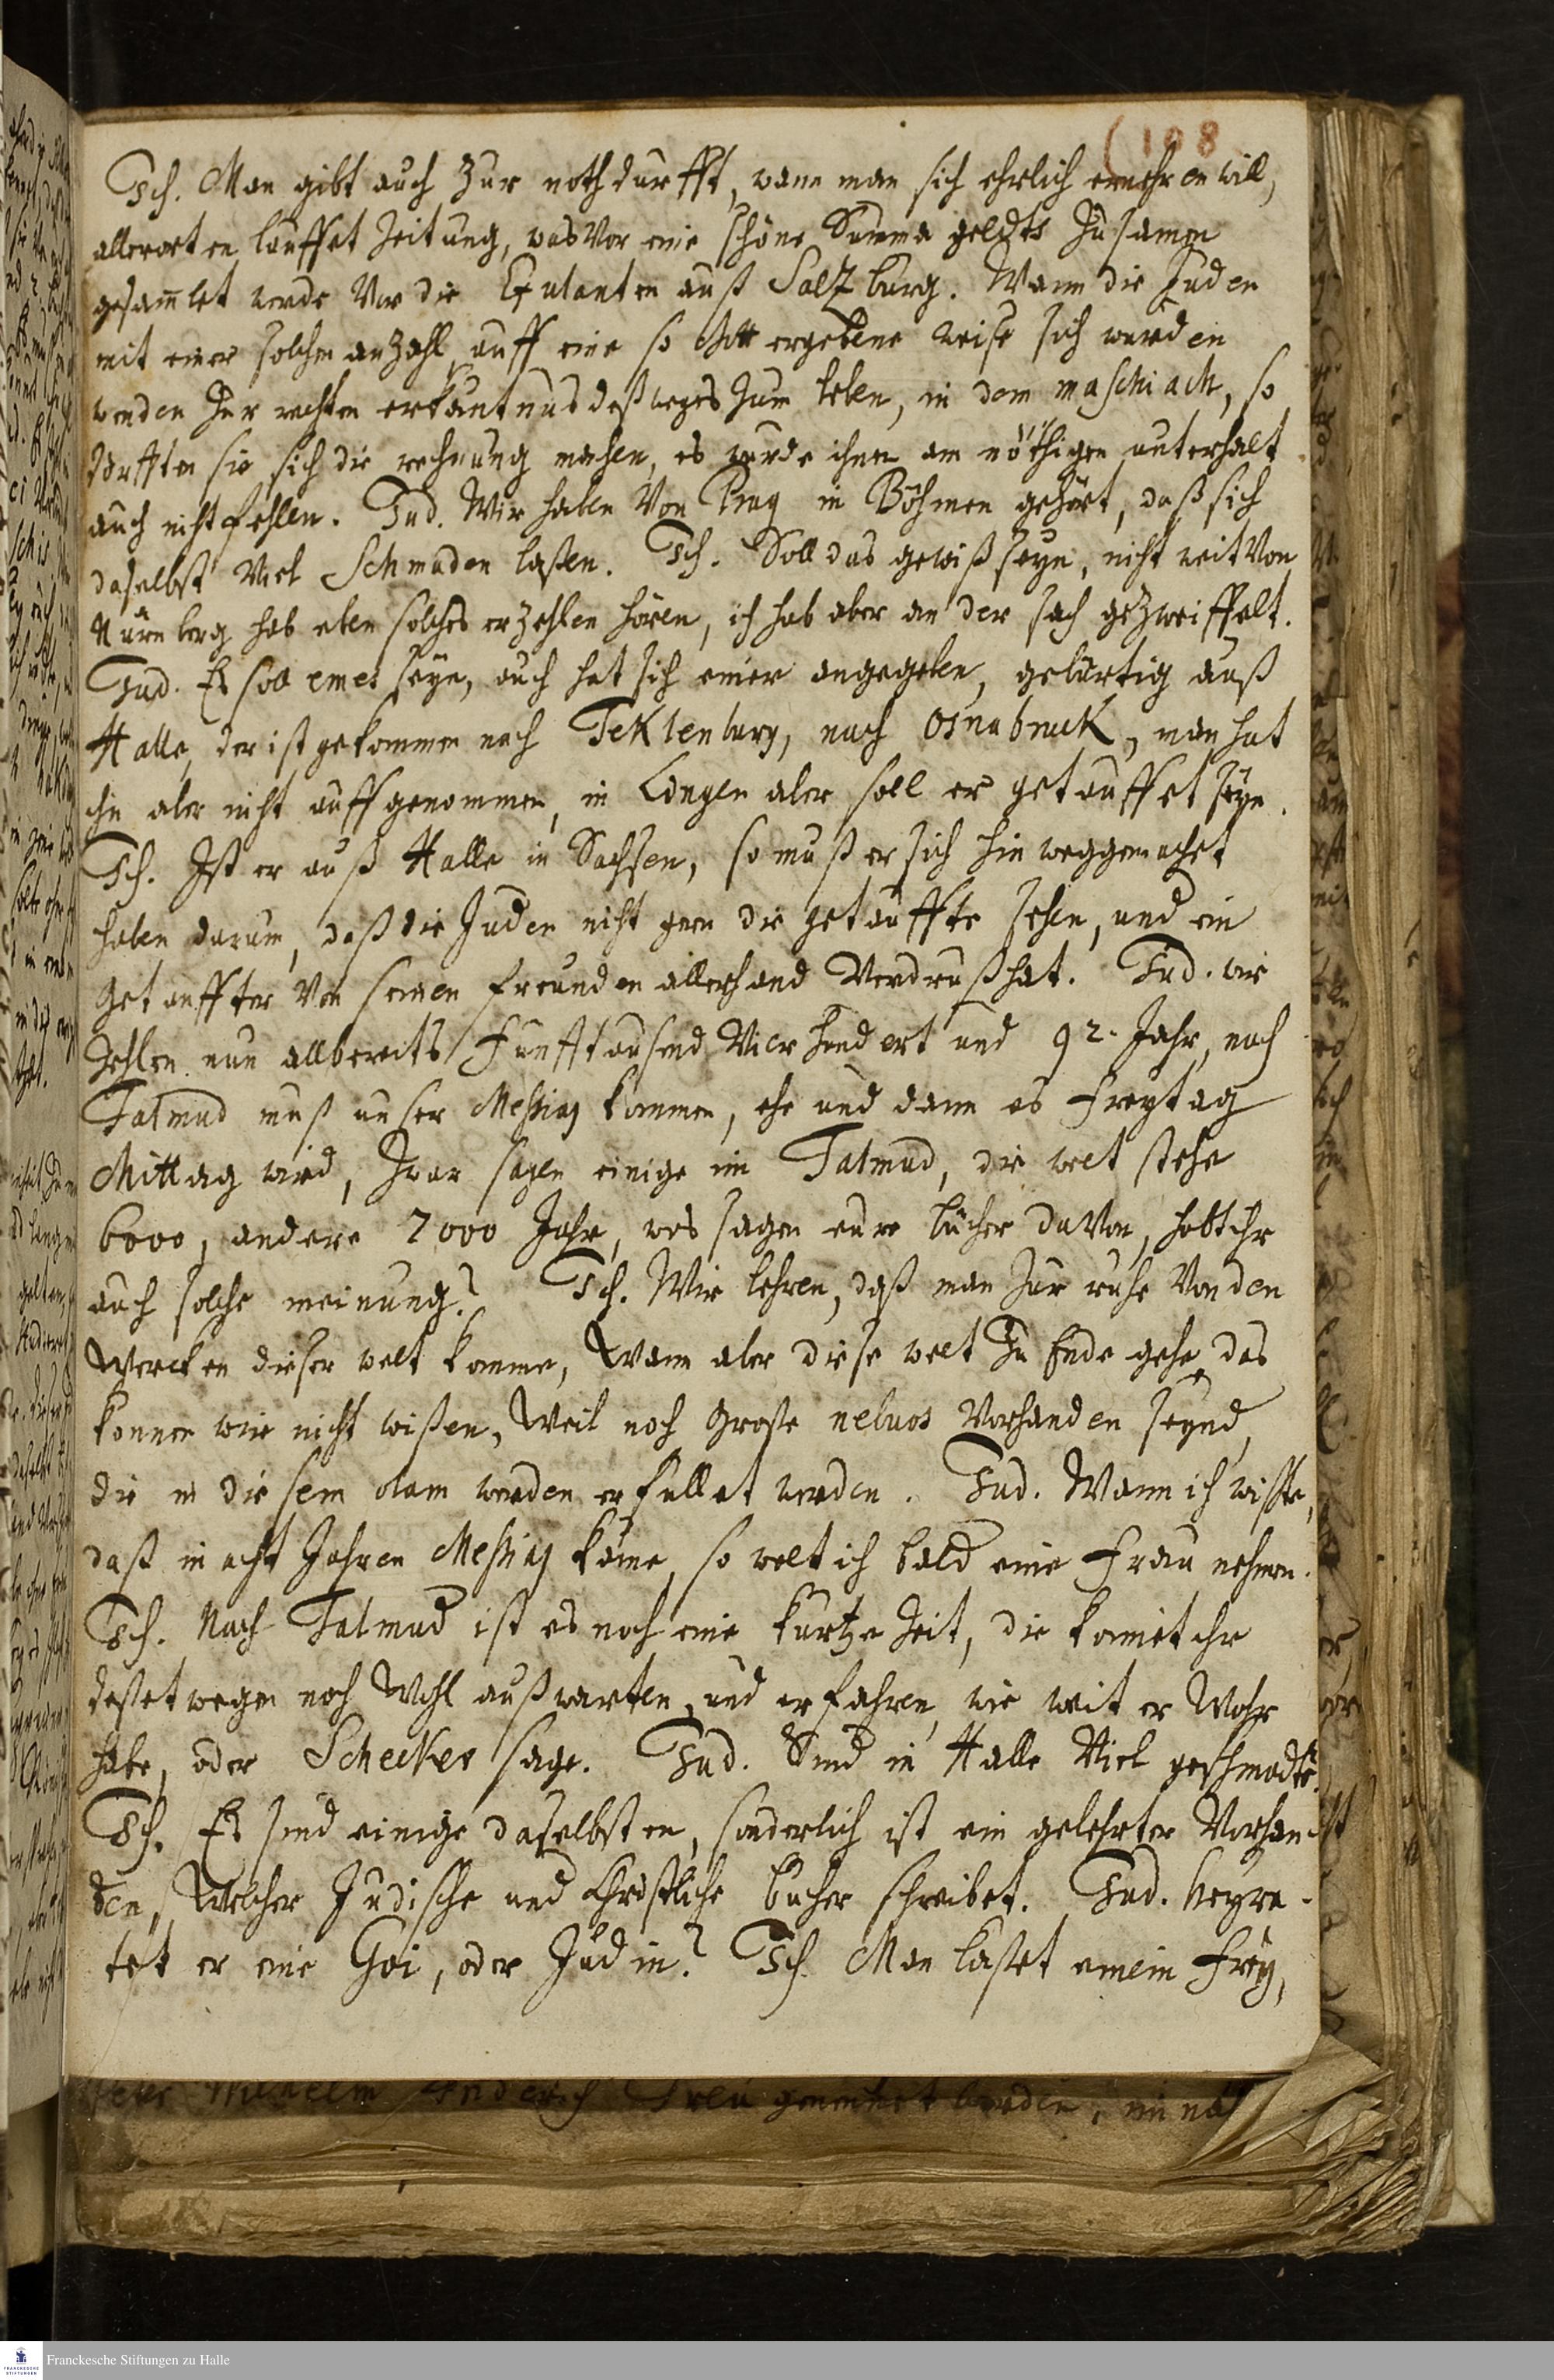 (108
Ich. Man gibt auch zur nothdurfft, wann man sich ehrlich ernehren will,
allerorten lauffet Zeitung, was vor eine schöne Summa geldts zusamen
gesamlet werde vor die Exulanten auß Saltzburg. Wann die Juden
mit einer solchen anzahl, auff eine so Gott ergebene weise sich wurden
wenden zur rechten erkäntnus deß weges zum leben, in dem maschiach, so
dörfften sie sich die rechnung machen, es wurde ihnen am nöthigen unterhalt
auch nicht fehlen. Jud. Wir haben von Prag in Böhmen gehört, daß sich
daselbst viel Schmaden laßen. Ich. Soll das gewiß seyn, nicht weit von
Nürnberg hab eben solches erzehlen hören, ich hab aber an der sach gezweiffelt.
Jud. Es soll emes seyn, auch hat sich einer angegeben, gebürtig auß
Halle, der ist gekommen nach Teklenburg, nach Osnabruck, man hat
ihn aber nicht auffgenommen, in Lingen aber soll er getauffet seyn.
Ich. Ist er auß Halle in Sachsen, so muß er sich hinweggemachet
haben darum, daß die Juden nicht gern die getauffte sehen, und ein
getauffter von seinen freunden allerhand Verdruß hat. Jud. wir
zehlen nun allbereits Funfftausend Vierhundert und 92. Jahr, nach
Talmud muß unser Meßias kommen, ehe und dann es Freytag
Mittag wird, zwar sagen einige im Talmud, die welt stehe
6000, andere 7000 Jahr, was sagen eure bücher davon, habt ihr
auch solche meinung? Ich. Wir lehren, daß man zur ruhe von den
Wercken dieser welt komme, Wann aber diese welt zu Ende gehe, das
konnen wir nicht wißen, Weil noch große nebuos vorhanden seynd,
die in diesem olam werden erfullet werden. Jud. Wann ich wißte,
daß in acht Jahren Meßias käme, so wolt ich bald eine Frau nehmen.
Ich. Nach Talmud ist es noch eine kurtze Zeit, die konnet ihr
deßetwegen noch Wohl außwarten, und erfahren, wie weit er Wahr
habe, oder Schecker sage. Jud. Sind in Halle Viel geschmadte?
Ich. Es sind einige daselbsten, sonderlich ist ein gelehrter Vorhan
den, Welcher Judische und Christliche bücher schreibet. Jud. Heyra-
tet er eine Goi, oder Judin? Ich. Man laßet einem frey,
Wilhelm genennet worden,
Franckesche Stiftungen zu Halle